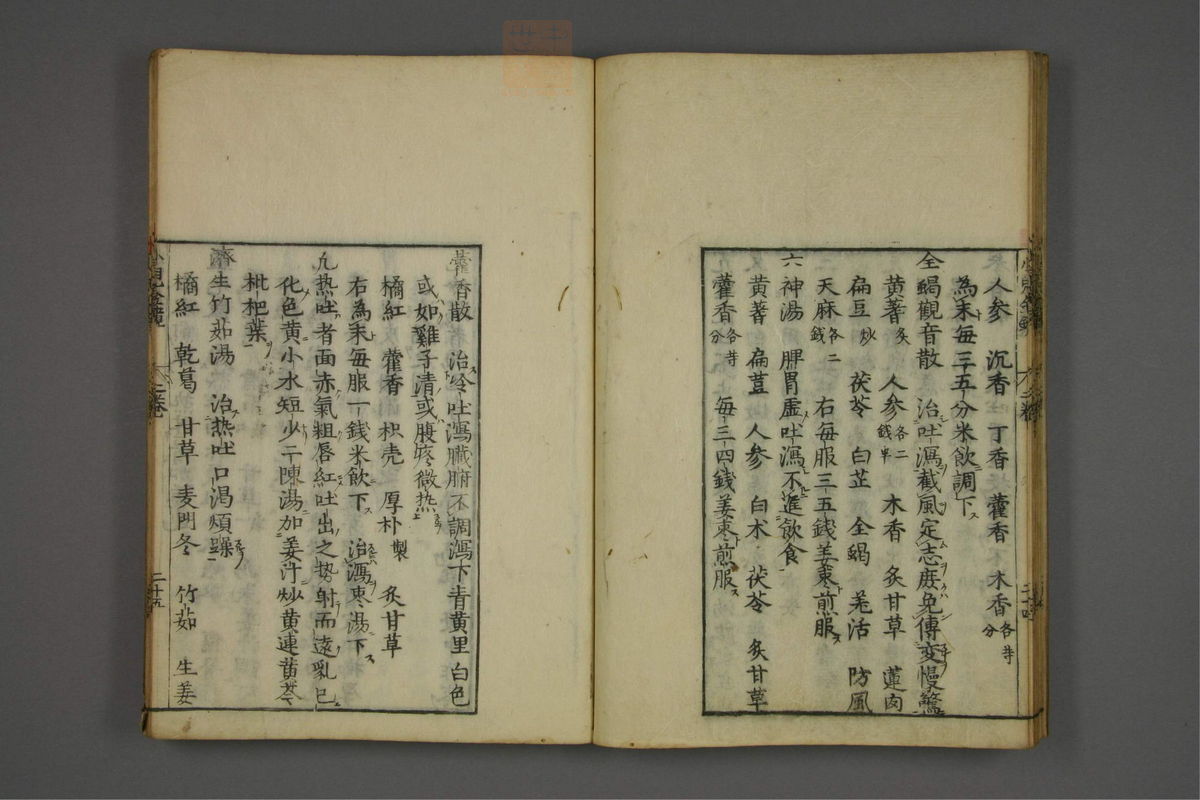 人参 沉香 丁香 藿香 木香各等分
為末毎三五分米飲調下
全蝎觀音散 治吐瀉截風定志庻免傳変慢驚
黄蓍炙 人参各二錢半 木香 炙甘草 蓮肉
扁豆炒 茯苓 白芷 全蝎 羌活 防風
天麻各二錢 右毎服三五錢姜棗煎服
六神湯 脾胃虚吐瀉不進飲食
黄蓍 扁荳 人参 白朮 茯苓 炙甘草
藿香各等分 毎三四錢姜棗煎服
藿香散 治冷吐瀉臓腑不調瀉下青黄里白色
或如雞子清或腹疼微热
橘紅 藿香 枳壳 厚朴製 炙甘草
右為末毎服一錢米飲下 治瀉棗湯下
凢热吐者面赤氣粗唇紅吐出之势射而遠乳已
化色黄小水短少二陳湯加姜汁炒黄連黄芩
枇杷葉
濟生竹茹湯 治热吐口渴煩躁
橘紅 乾葛 甘草 麦門冬 竹茹 生姜
二十五